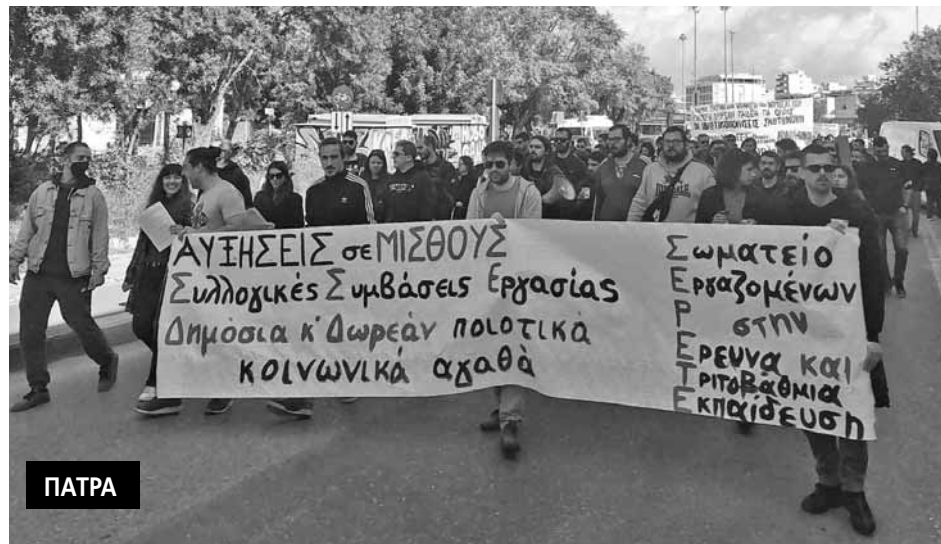 ΑΥΞΗΣΕΙΣ σε ΜΙΣΘΟΥΣ
Συλλογικές Συμβάσεις Εργασίας
Δημόσια κ' Δωρεάν ποιοτικά
κοινωνικά αγαθά
Σωματείο
Εργαζομένων
στην
Ερευνα και
Τριτοβάθμια
Εκπαίδευση
ΣΕΡΕΤΕ
ΠΑΤΡΑ